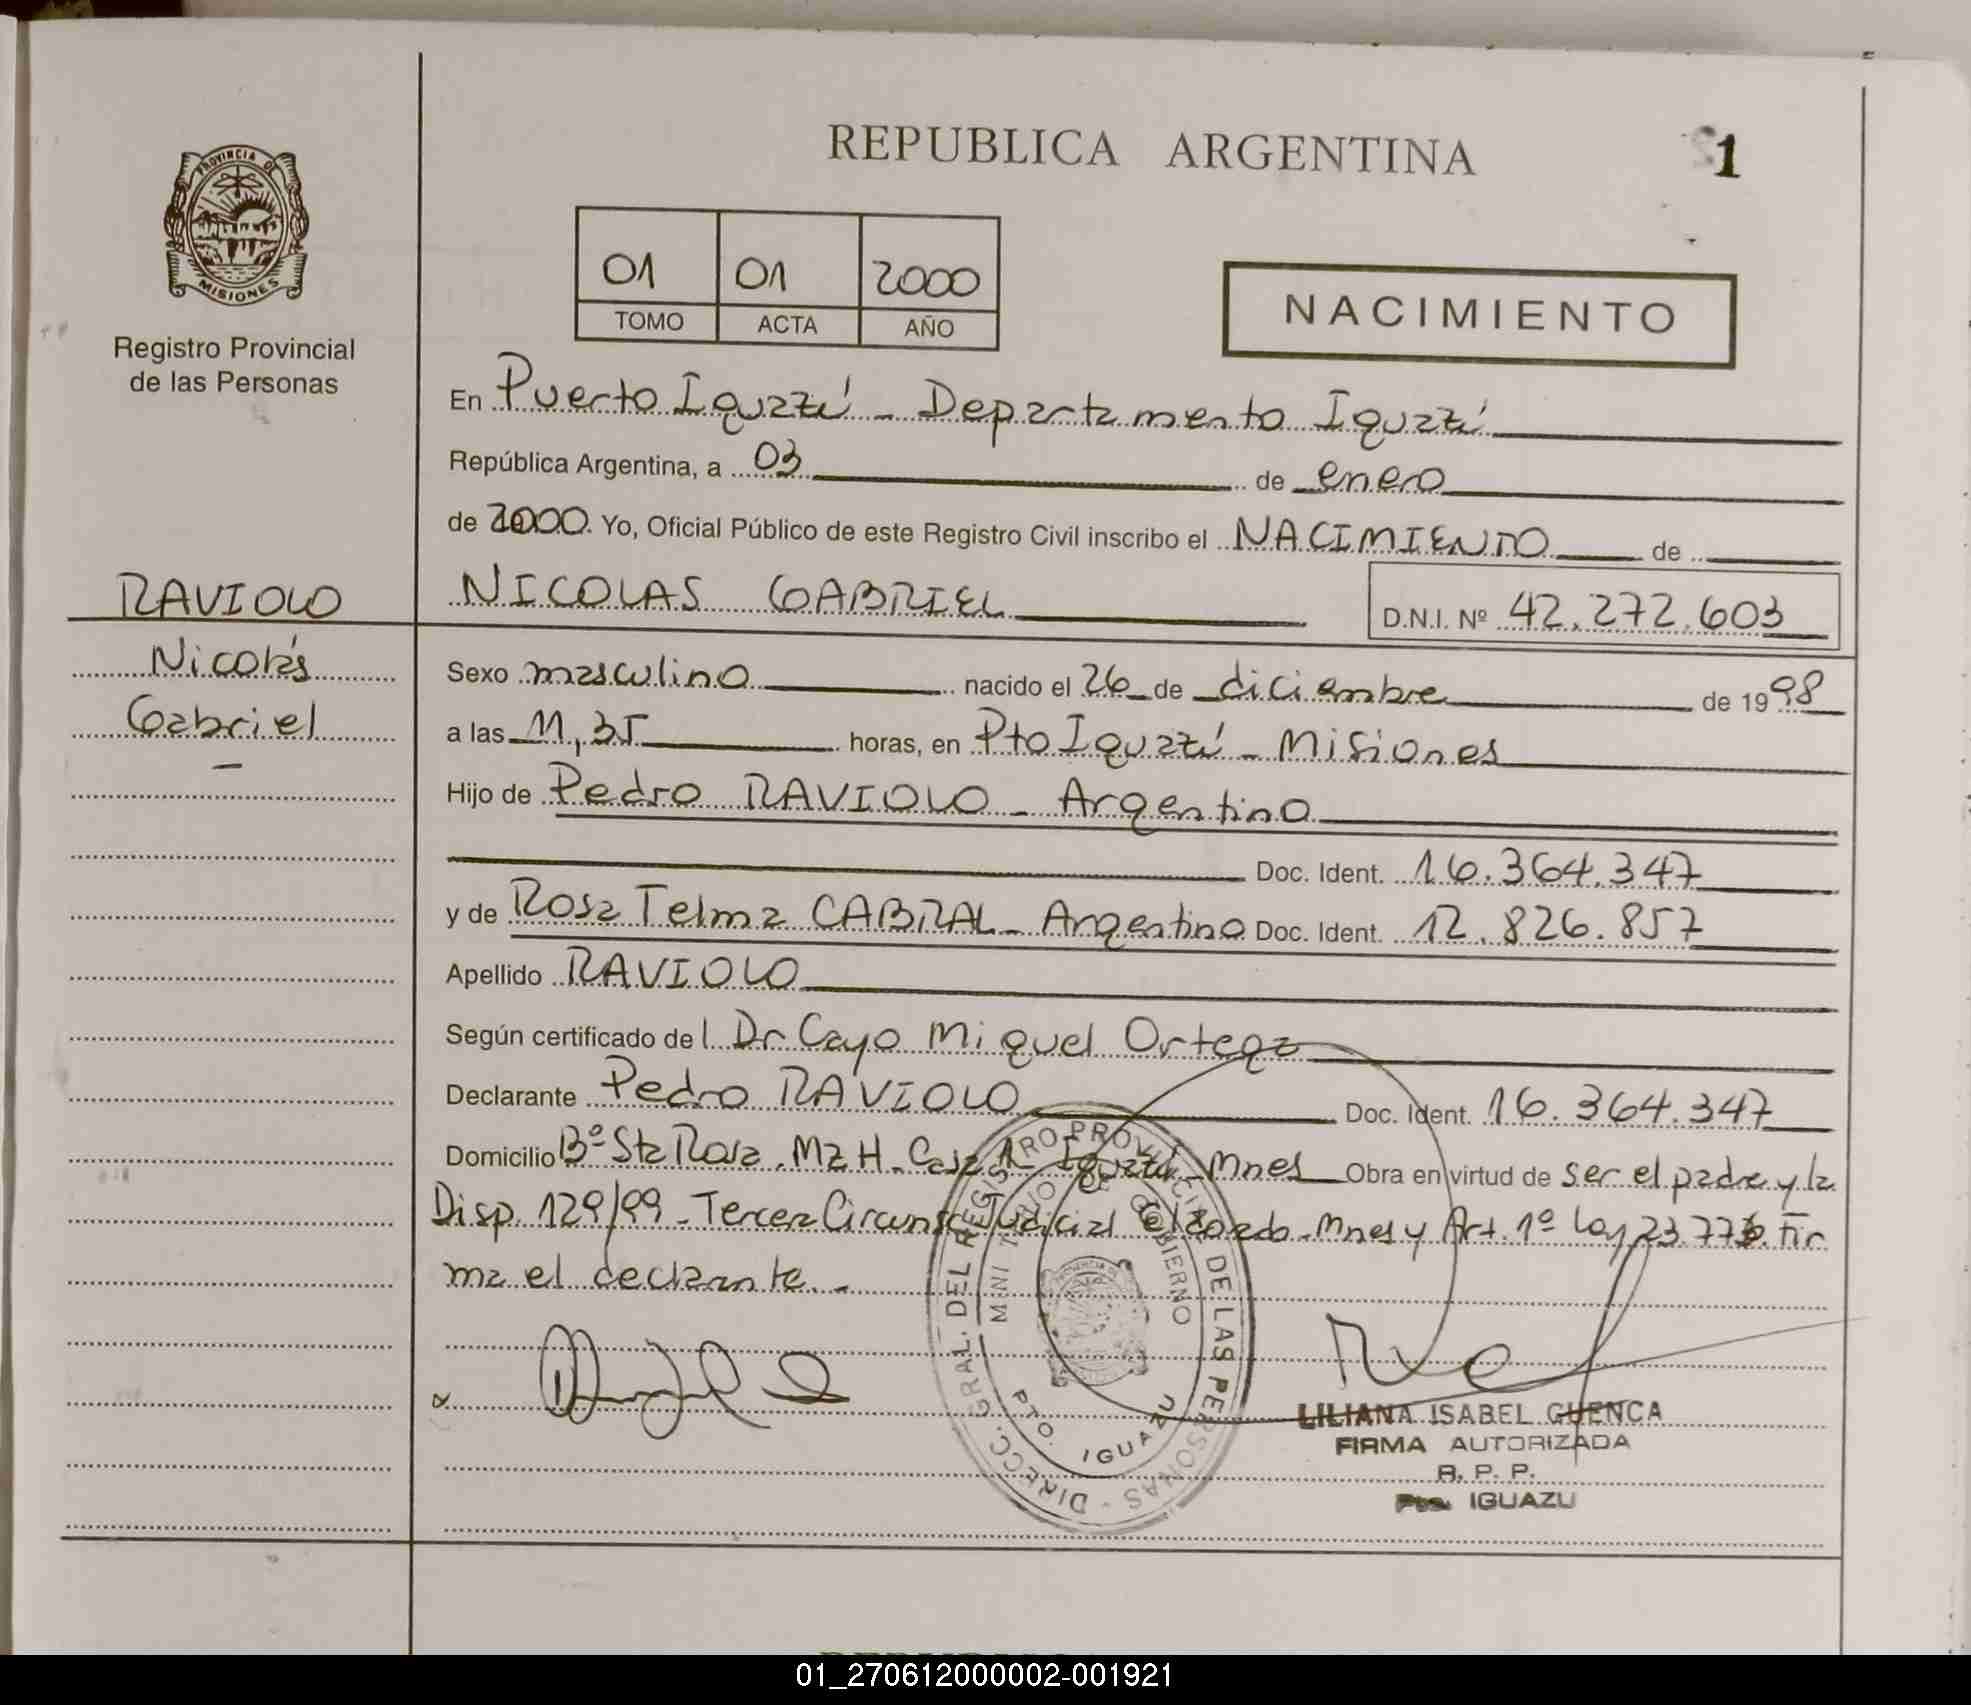 REPUBLICA ARGENTINA
1
PROVINCIA DE
MISIONES
Registro Provincial
de las Personas
01 01 2000
TOMO ACTA AÑO
NACIMIENTO
En Puerto Iguazú - Departamento Iguazú
República Argentina, a 03 de enero
de 2000. Yo, Oficial Público de este Registro Civil inscribo el NACIMIENTO de
RAVIOLO
NICOLAS GABRIEL
D.N.I. Nº 42.272.603
Nicolás
Gabriel
Sexo masculino nacido el 26 de diciembre de 1998
a las 11,35 horas, en Pto Iguazú - Misiones
Hijo de Pedro RAVIOLO - Argentino
Doc. Ident. 16.364.347
y de Rosa Telma CABRAL - Argentina Doc. Ident. 12.826.857
Apellido RAVIOLO
Según certificado del Dr Cayo Miguel Ortega
Declarante Pedro RAVIOLO Doc. Ident. 16.364.347
Domicilio Bº Sta Rosa. Mz H. Casa 1 Iguazú Mnes Obra en virtud de ser el padre y la
Disp. 129/99 - Tercera Circunsc Judicial Eldorado - Mnes y Art. 1º Ley 23.776. Fir
ma el declarante. -
DIRECC. GRAL. DEL REGISTRO PROVINCIAL DE LAS PERSONAS
MINISTERIO DE GOBIERNO
PTO. IGUAZU
LILIANA ISABEL CUENCA
FIRMA AUTORIZADA
R. P. P.
Pto. IGUAZU
01_270612000002-001921